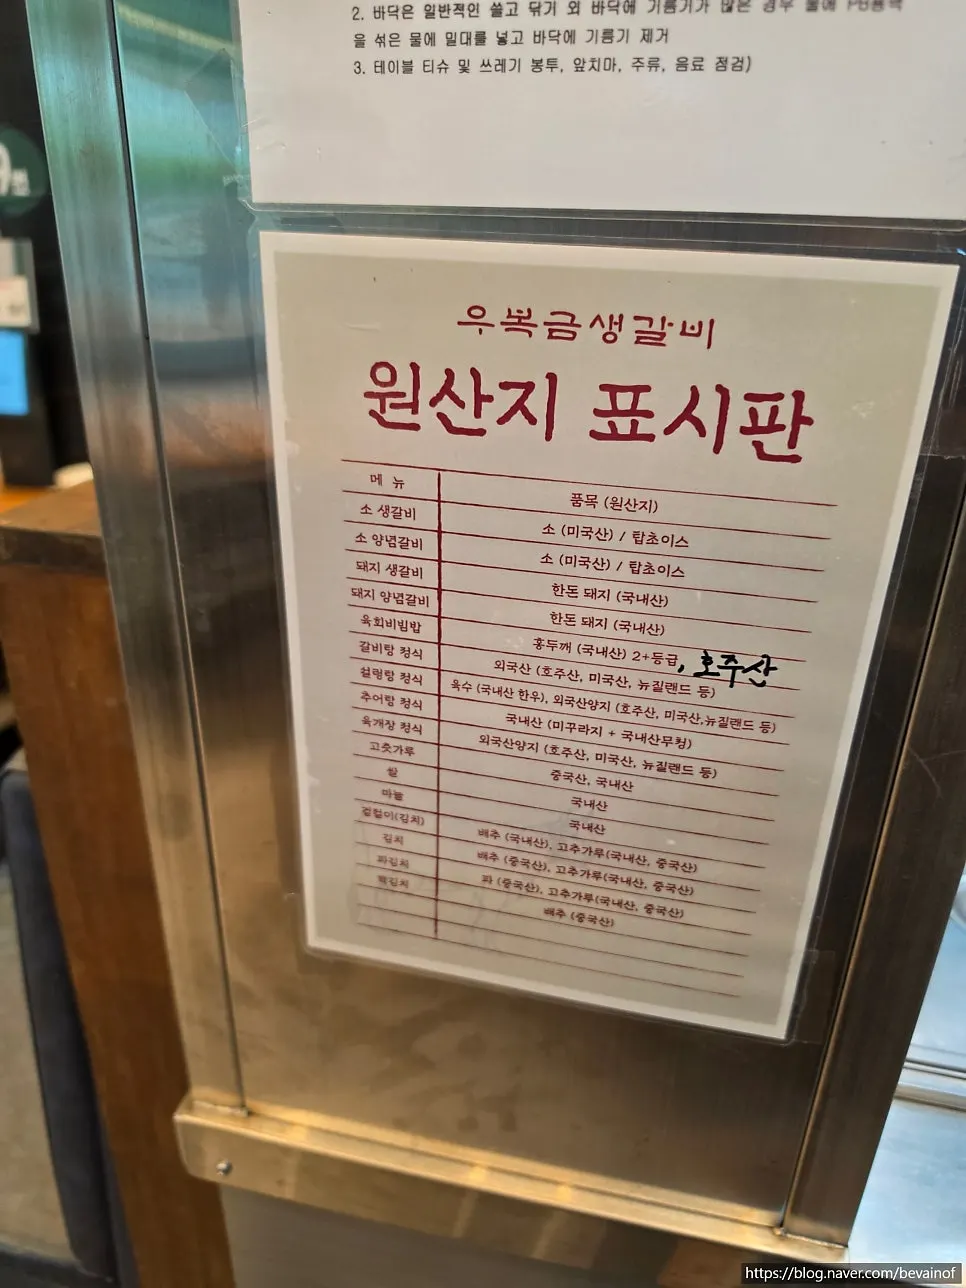 2. 바닥은 일반적인 쓸고 닦기 외 바닥에 기름기가 많은 경우 물에 PB용액
을 섞은 물에 밀대를 넣고 바닥에 기름기 제거
3. 테이블 티슈 및 쓰레기 봉투, 앞치마, 주류, 음료 점검)
9번
우뽁금생갈비
원산지 표시판
메 뉴 품목 (원산지)
소 생갈비 소 (미국산) / 탑초이스
소 양념갈비 소 (미국산) / 탑초이스
돼지 생갈비 한돈 돼지 (국내산)
돼지 양념갈비 한돈 돼지 (국내산)
육회비빔밥 홍두깨 (국내산) 2+등급, 호주산
갈비탕 정식 외국산 (호주산, 미국산, 뉴질랜드 등)
설렁탕 정식 육수 (국내산 한우), 외국산양지 (호주산, 미국산,뉴질랜드 등)
추어탕 정식 국내산 (미꾸라지 + 국내산무청)
육개장 정식 외국산양지 (호주산, 미국산, 뉴질랜드 등)
고춧가루 중국산, 국내산
쌀 국내산
마늘 국내산
겉절이(김치) 배추 (국내산), 고추가루(국내산, 중국산)
김치 배추 (중국산), 고추가루(국내산, 중국산)
파김치 파 (중국산), 고추가루(국내산, 중국산)
백김치 배추 (중국산)
https://blog.naver.com/bevainof